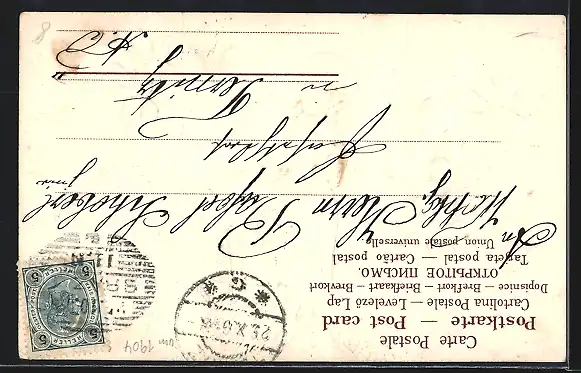 Carte Postale
Postkarte — Post card
Cartolina Postale — Levelező Lap
Dopisnice — Brefkort — Briefkaart — Brevkort
ОТКРЫТОЕ ПИСЬМО.
Tarjeta postal — Cartão postal
Union postale universelle
An
Herrn Josef Schobert
Gasthof
in Ternitz
N. Ö.
5 HELLER 5
um 1904
8